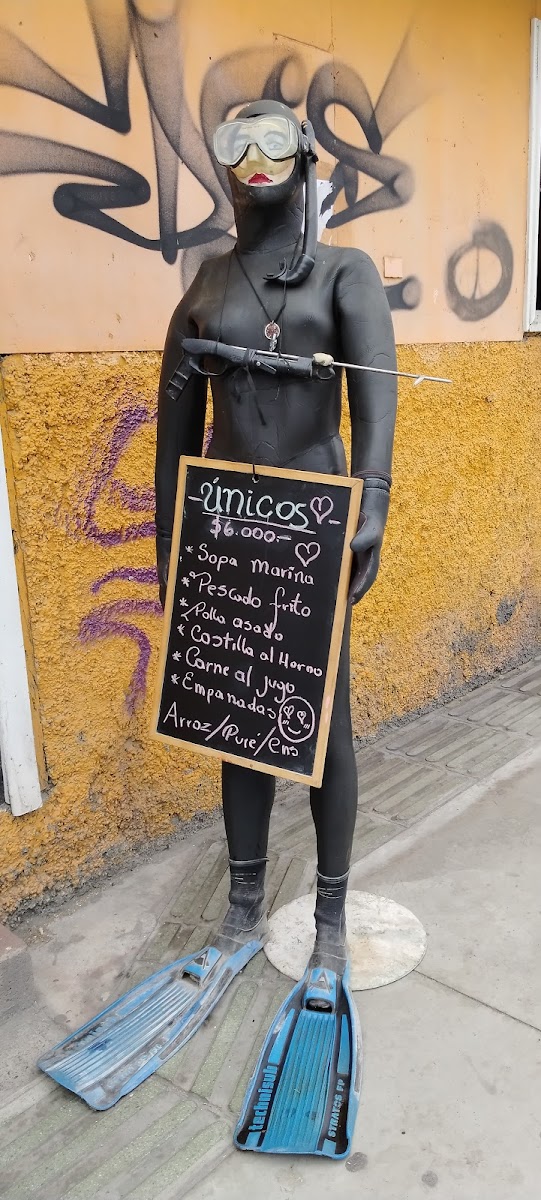 -Únicos-
$6.000-
* Sopa marina
* Pescado frito
* Pollo asado
* Costilla al Horno
* Carne al jugo
* Empanadas
Arroz/Puré/Ens
technisub
STRATOS FP